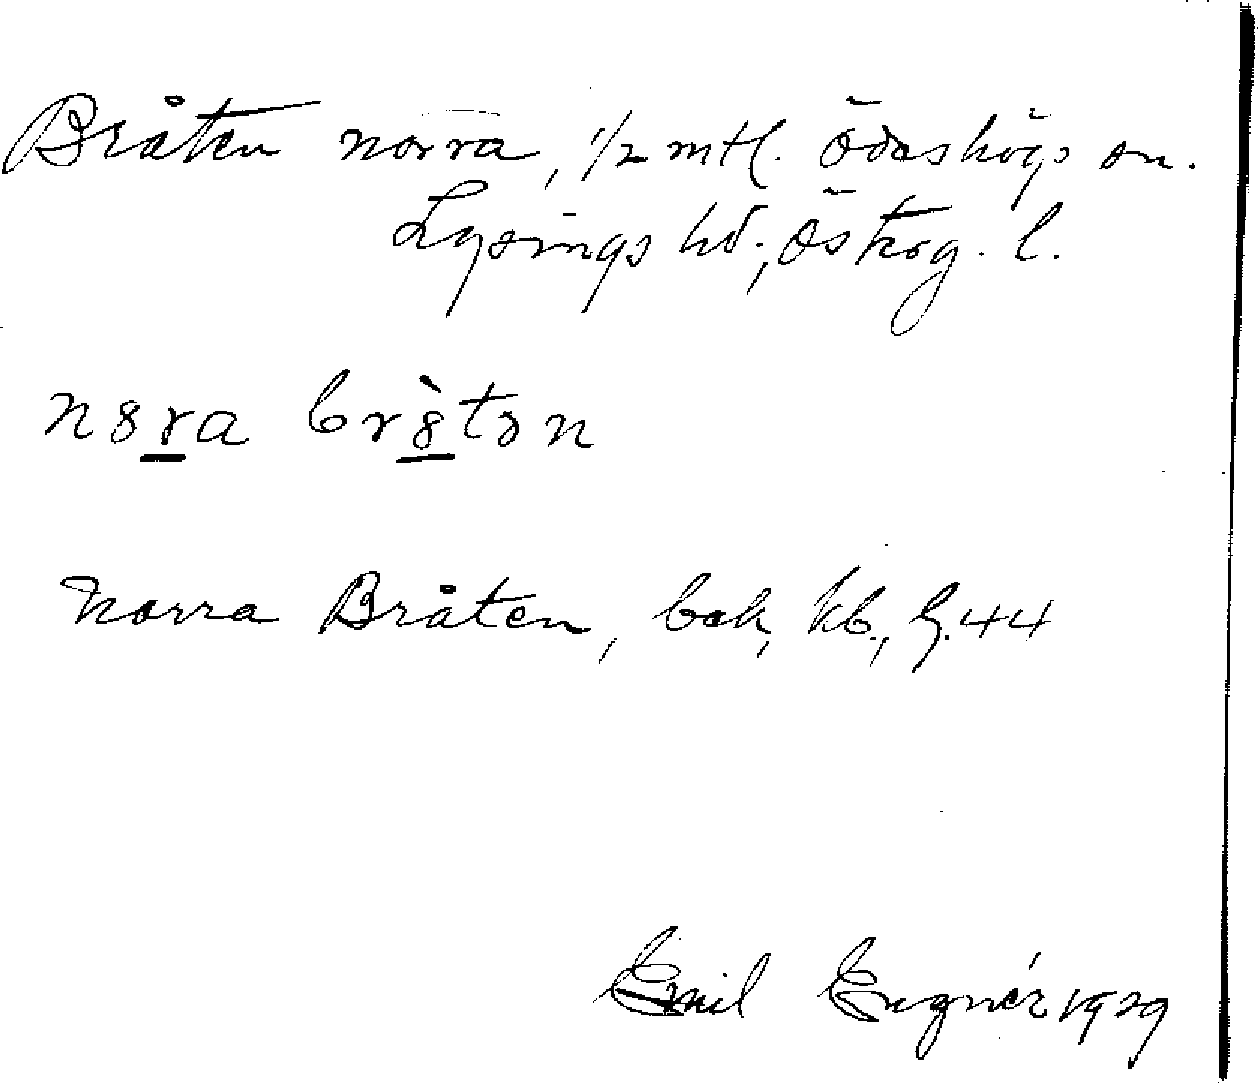 Bråten norra, 1/2 mtl. Ödeshögs sn.
Lysings hd; Östtog. l.
Norra Bråten, bok, kb., h. 44
Emil Eugnér 1929